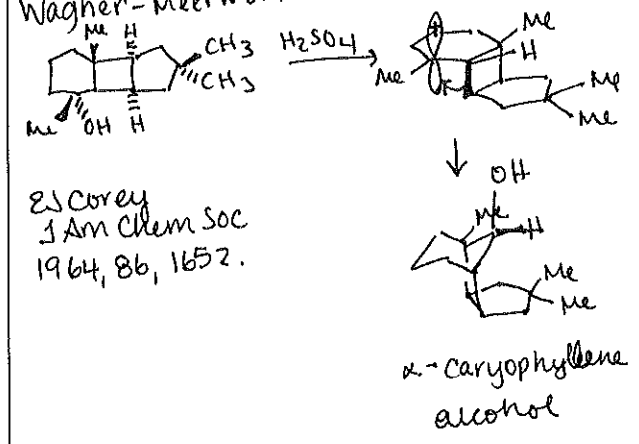 Wagner-Meerwein
Me H
CH3
CH3
H2SO4
Me OH H
Me
H
Me
Me
Me
EJ Corey
J Am Chem Soc
1964, 86, 1652.
OH
Me
H
Me
Me
α-caryophyllene
alcohol